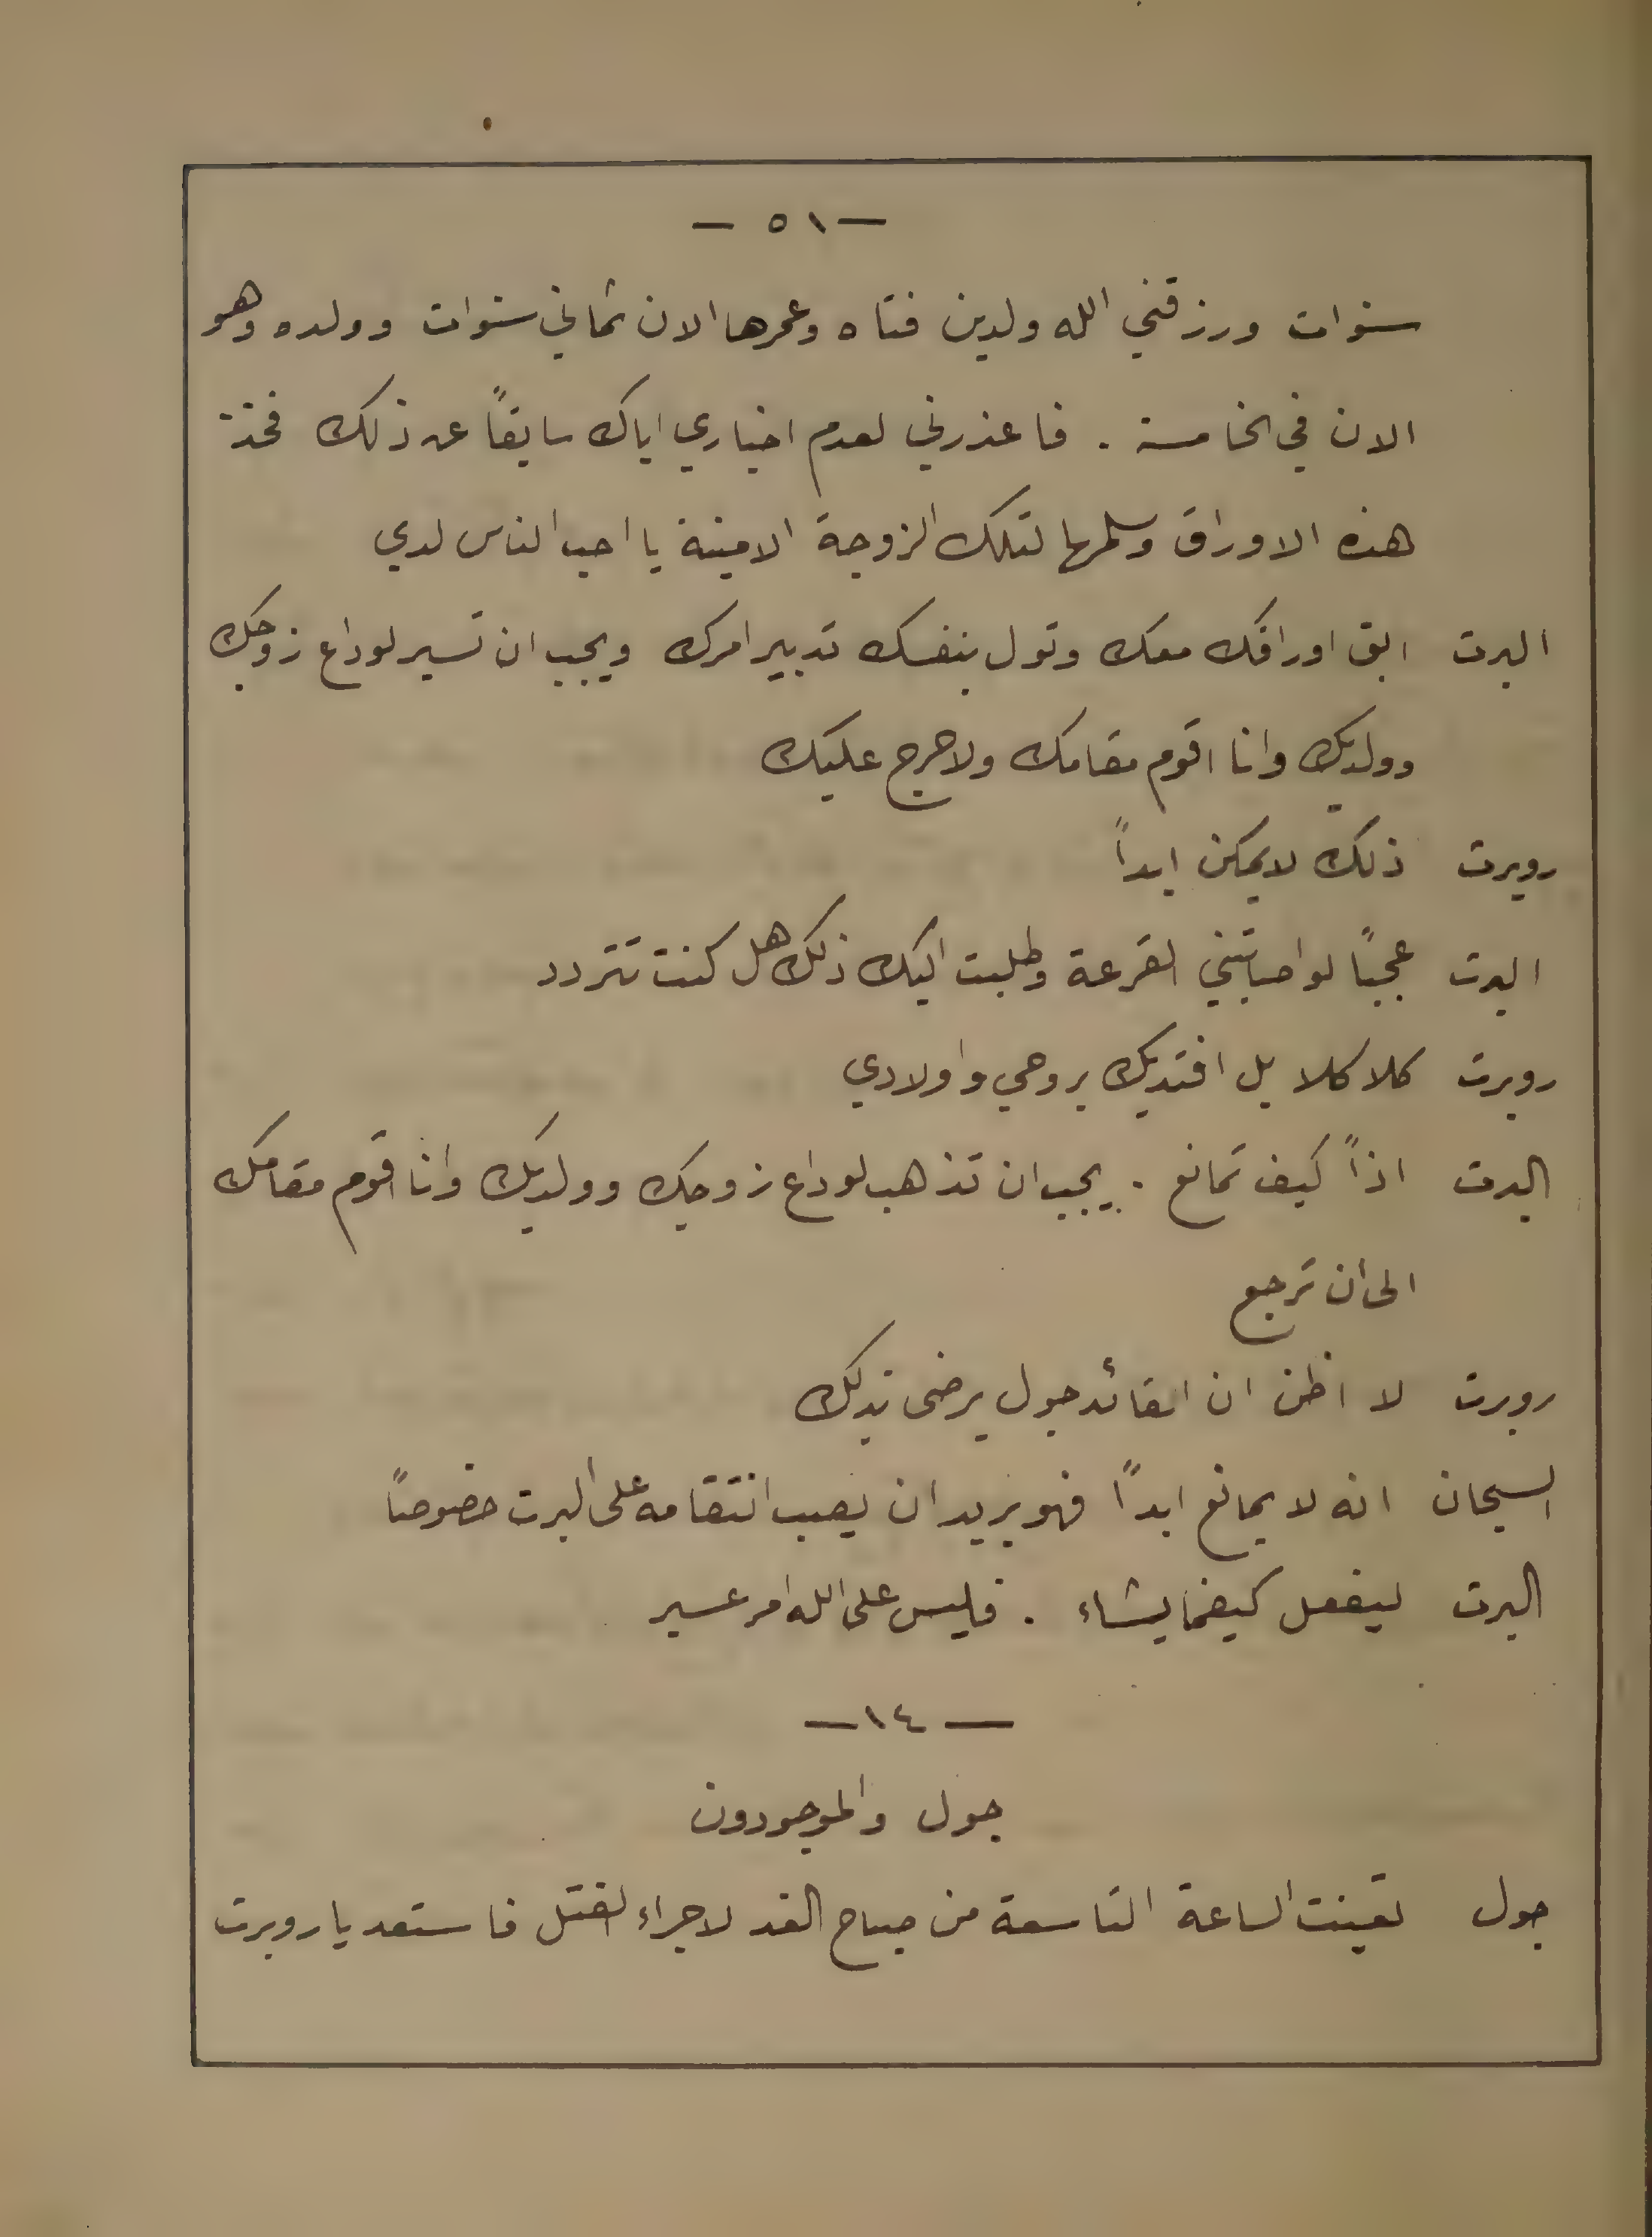 — ٥١ —
سنوات ورزقني الله ولدين فتاه وعمرها الان ثماني سنوات وولده وهو
الان في الخامسة . فاعذرني لعدم اخباري اياك سابقاً عن ذلك فخذ
هذه الاوراق وسلمها لتلك الزوجة الامينة يا احب الناس لدي
البرت ابق اوراقك معك وتول بنفسك تدبير امرك ويجب ان تسير لوداع زوجك
وولديك وانا اقوم مقامك ولا حرج عليك
روبرت ذلك لا يمكن ابداً
البرت عجباً لو اصابتني القرعة وطلبت اليك ذلك هل كنت تتردد
روبرت كلا كلا بل افتديك بروحي واولادي
البرت اذاً كيف تمانع . يجب ان تذهب لوداع زوجك وولديك وانا اقوم مقامك
الى ان ترجع
روبرت لا اظن ان القائد جول يرضى بذلك
السجان انه لا يمانع ابداً فهو يريد ان يصب انتقامه على البرت خصوصاً
البرت ليفعل كيفما يشاء . فليس على الله امر عسير
— ١٤ —
جول والموجودون
جول تعينت الساعة التاسعة من صباح الغد لاجراء القتل فاستعد يا روبرت